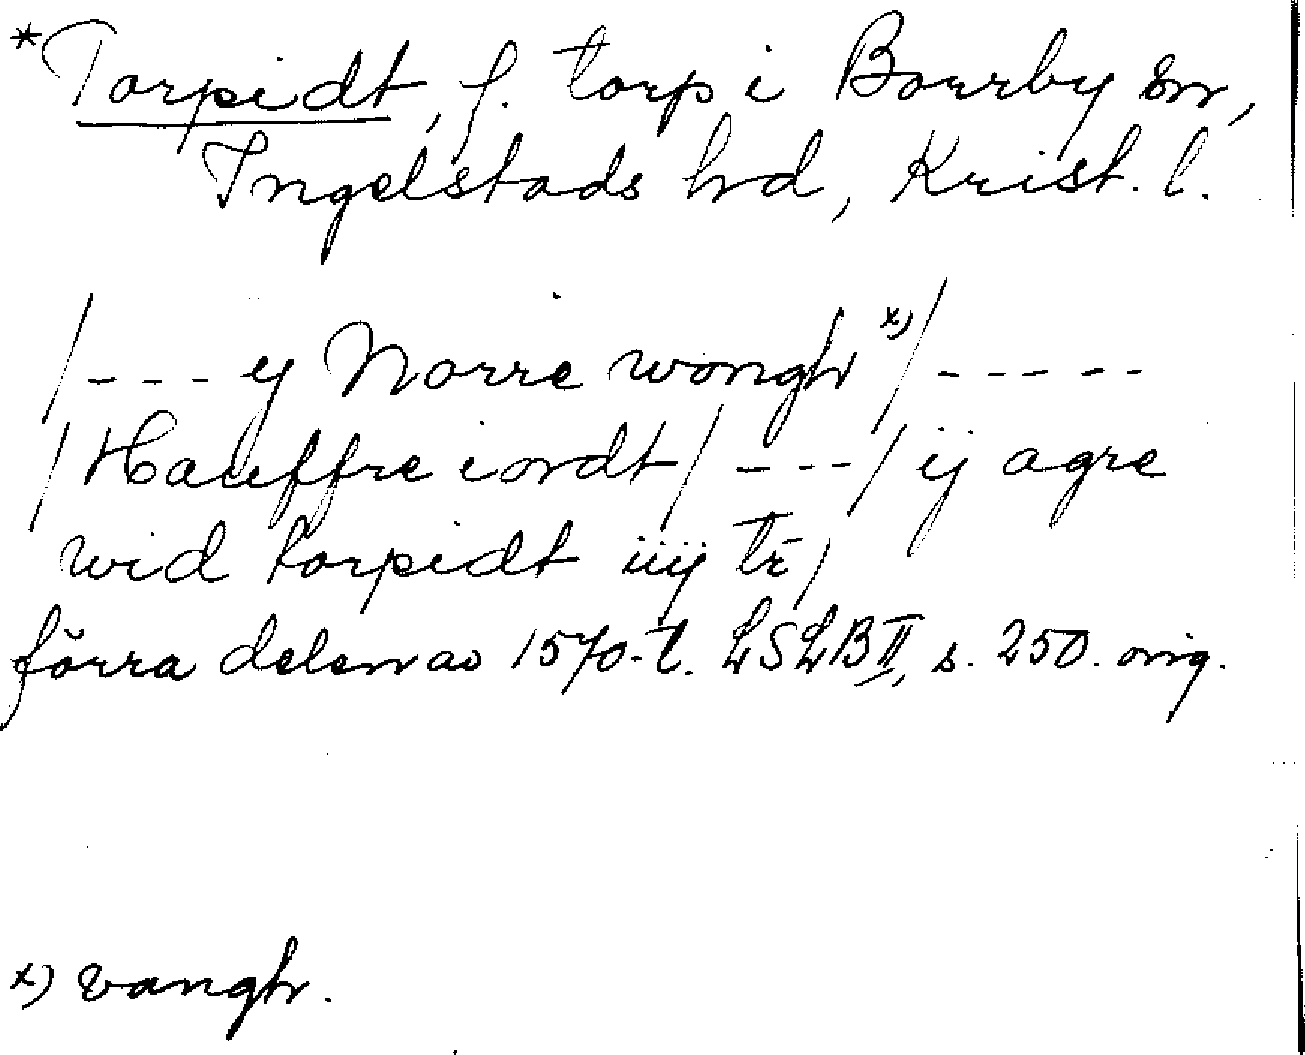 *Torpidt, f. torp i Borrby sn,
Ingelstads hrd, Krist. l.
/ - - - ij Norre wongh x) / - - - - -
/ Hauffre iordt / - - - / ij agre
wid torpidt iiij tr /
förra delen av 1570-t. LSLB II, s. 250. orig.
x) vangh.